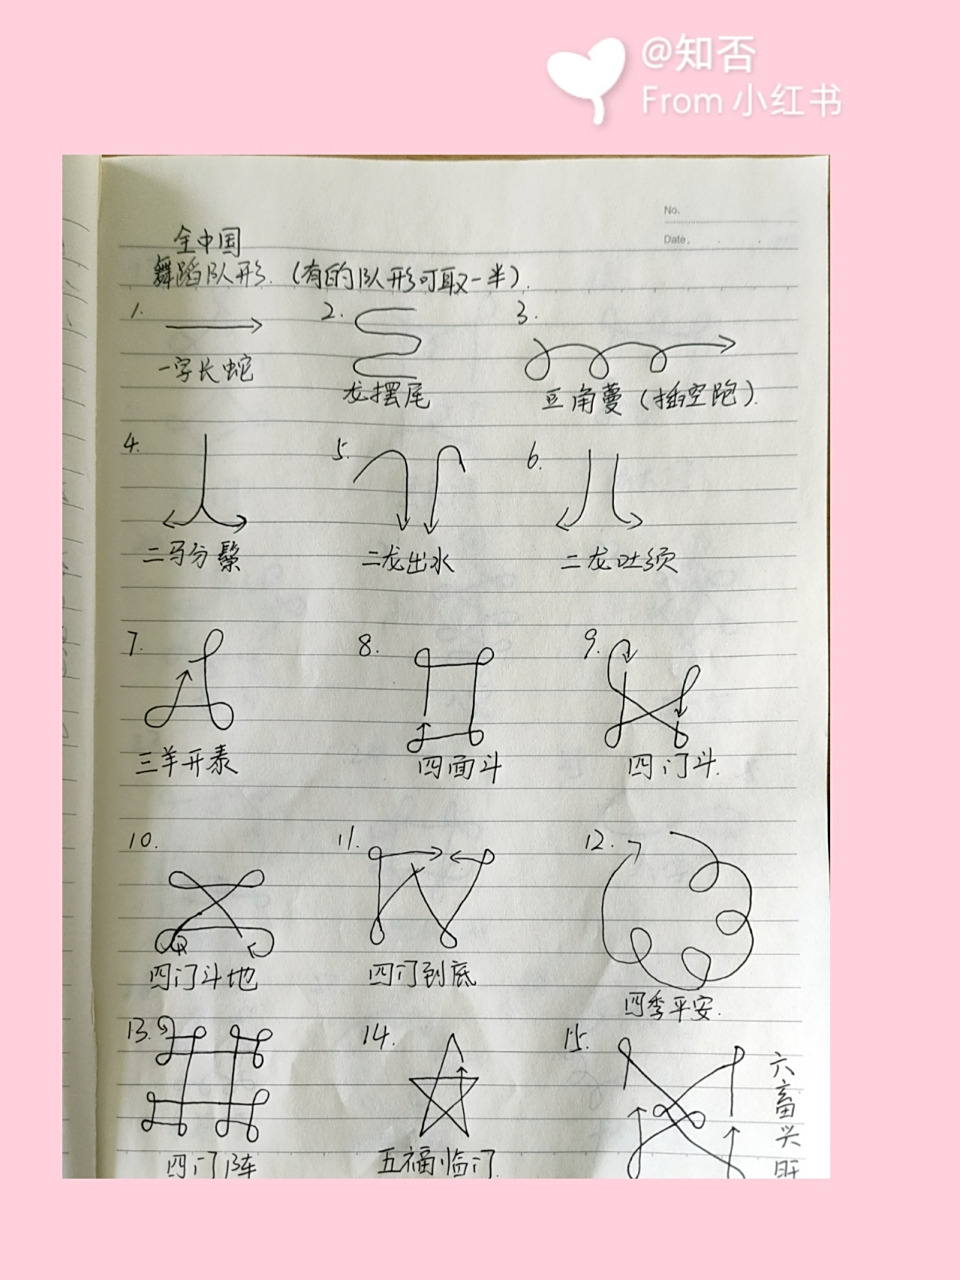 @知否
From 小红书
No.
Date.
全中国
舞蹈队形.(有的队形可取一半).
1. 2. 3.
一字长蛇 龙摆尾 豆角蔓(插空跑).
4. 5. 6.
二马分鬃 二龙出水 二龙吐须
7. 8. 9.
三羊开泰 四面斗 四门斗.
10. 11. 12.
四门斗地 四门到底 四季平安.
13. 14. 15.
四门阵 五福临门 六畜兴旺